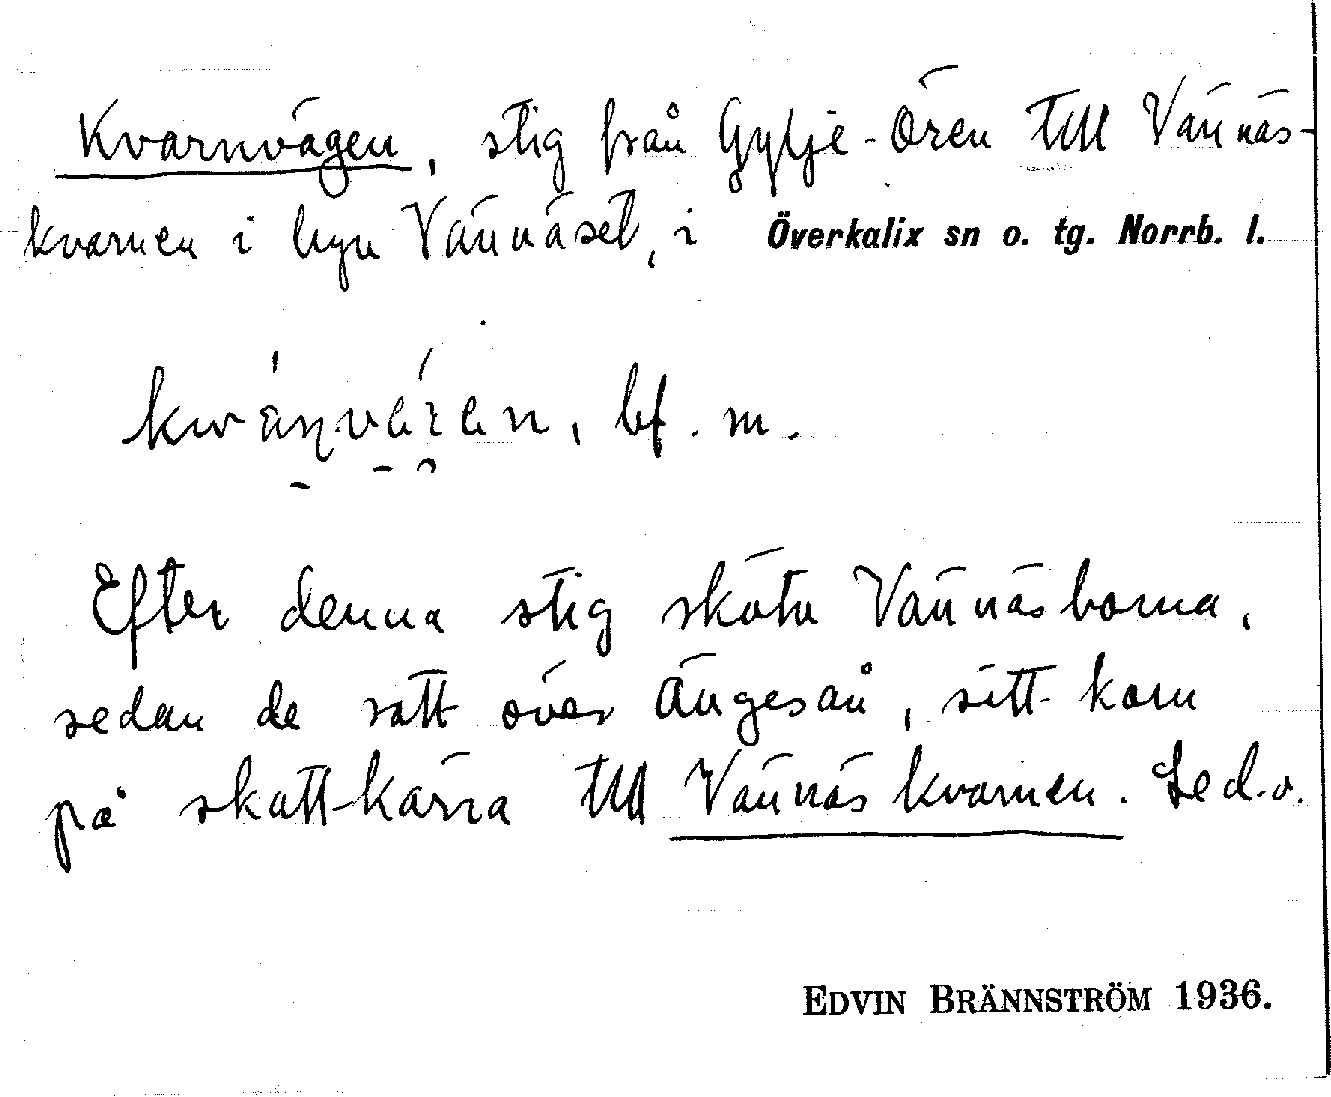 Kvarnvägen, stig från Gyljje-Ören till Vännäs-
kvarnen i byn Vännäset, i Överkalix sn o. tg. Norrb. l.
bf. m.
Efter denna stig sköto Vännäsborna,
sedan de rott över Ängesån, sitt korn
på skottkärra till Vännäskvarnen. Se d.o.
EDVIN BRÄNNSTRÖM 1936.